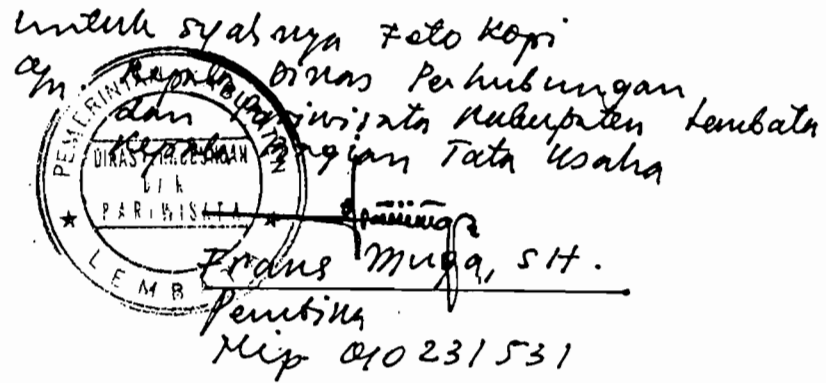 untuk syahnya Foto Kopi
a/n. Kepala Dinas Perhubungan
dan Pariwisata Kabupaten Lembata
Kepala Bagian Tata Usaha
PEMERINTAH KABUPATEN
DINAS PERHUBUNGAN
DAN
PARIWISATA
LEMBATA
Frans Muga, SH.
Pembina
Nip 010231531